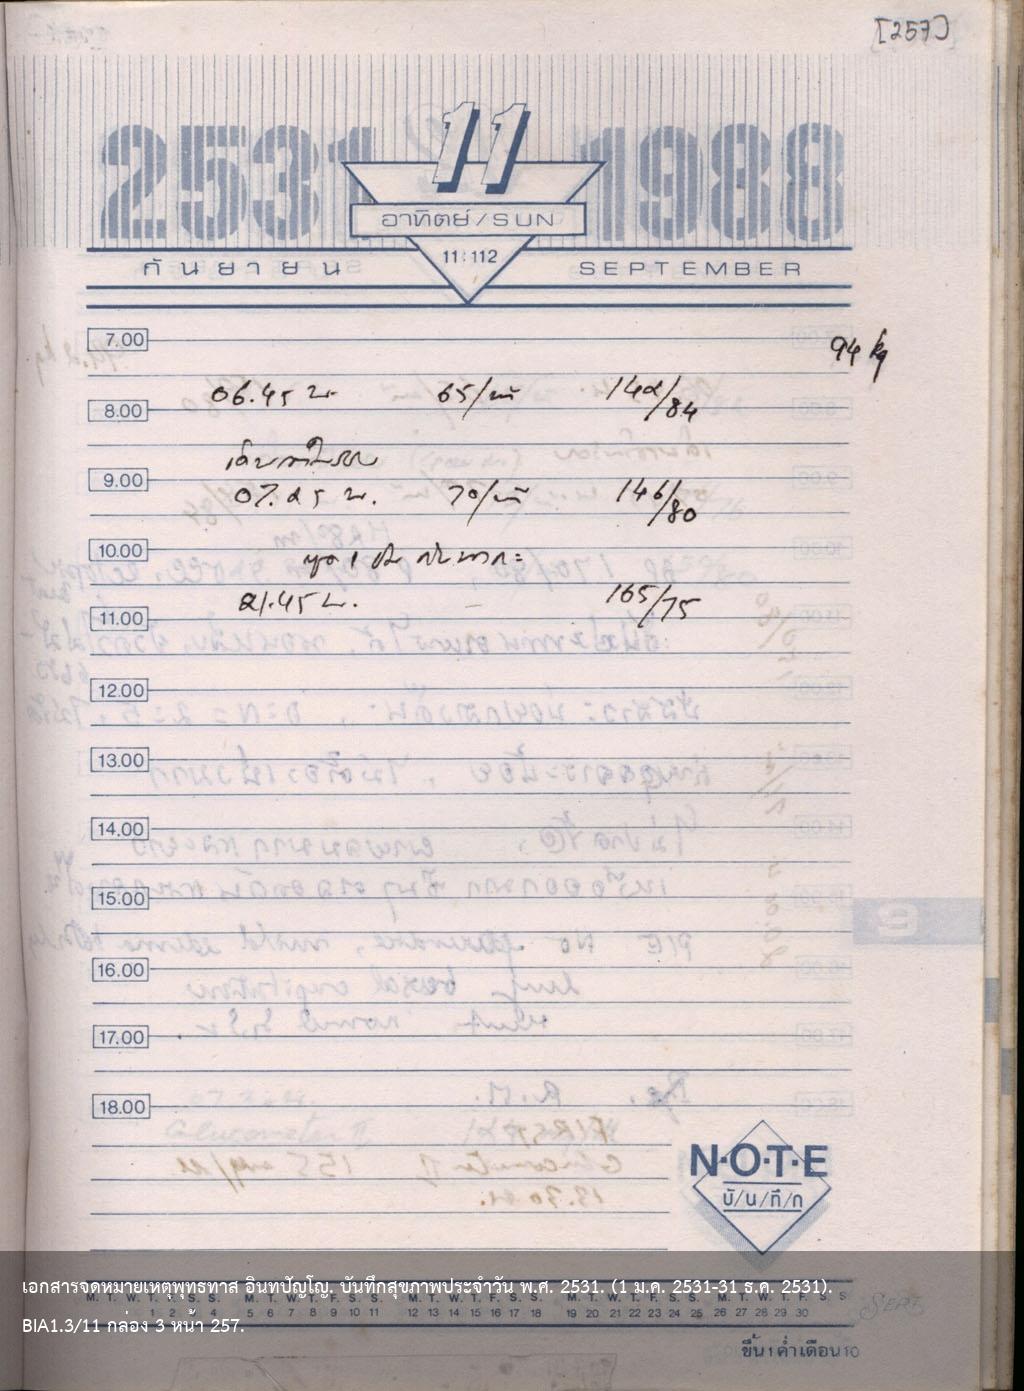 [257]
2531 11 1988
อาทิตย์/SUN
11:112
กันยายน SEPTEMBER
7.00
94 kg
06.45 น. 65/นาที 142/84
8.00
9.00
07.25 น. 70/นาที 146/80
10.00
21.45 น. - 165/75
11.00
12.00
13.00
14.00
15.00
16.00
17.00
18.00
N·O·T·E
บั/น/ทึ/ก
เอกสารจดหมายเหตุพุทธทาส อินทปัญโญ. บันทึกสุขภาพประจำวัน พ.ศ. 2531. (1 ม.ค. 2531-31 ธ.ค. 2531).
M. T. W. T. F. S. S. M. T. W. T. F. S. S. M. T. W. T. F. S. S. M. T. W. T. F. S. S. M. T. W. T. F. S. S
1 2 3 4 5 6 7 8 9 10 11 12 13 14 15 16 17 18 19 20 21 22 23 24 25 26 27 28 29 30
SEPT
BIA1.3/11 กล่อง 3 หน้า 257.
ขึ้น 1 ค่ำเดือน 10